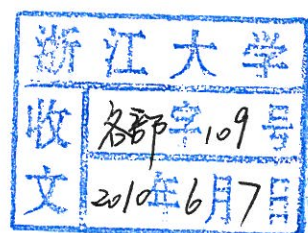 浙江大学
收文
各部字109号
2010年6月7日